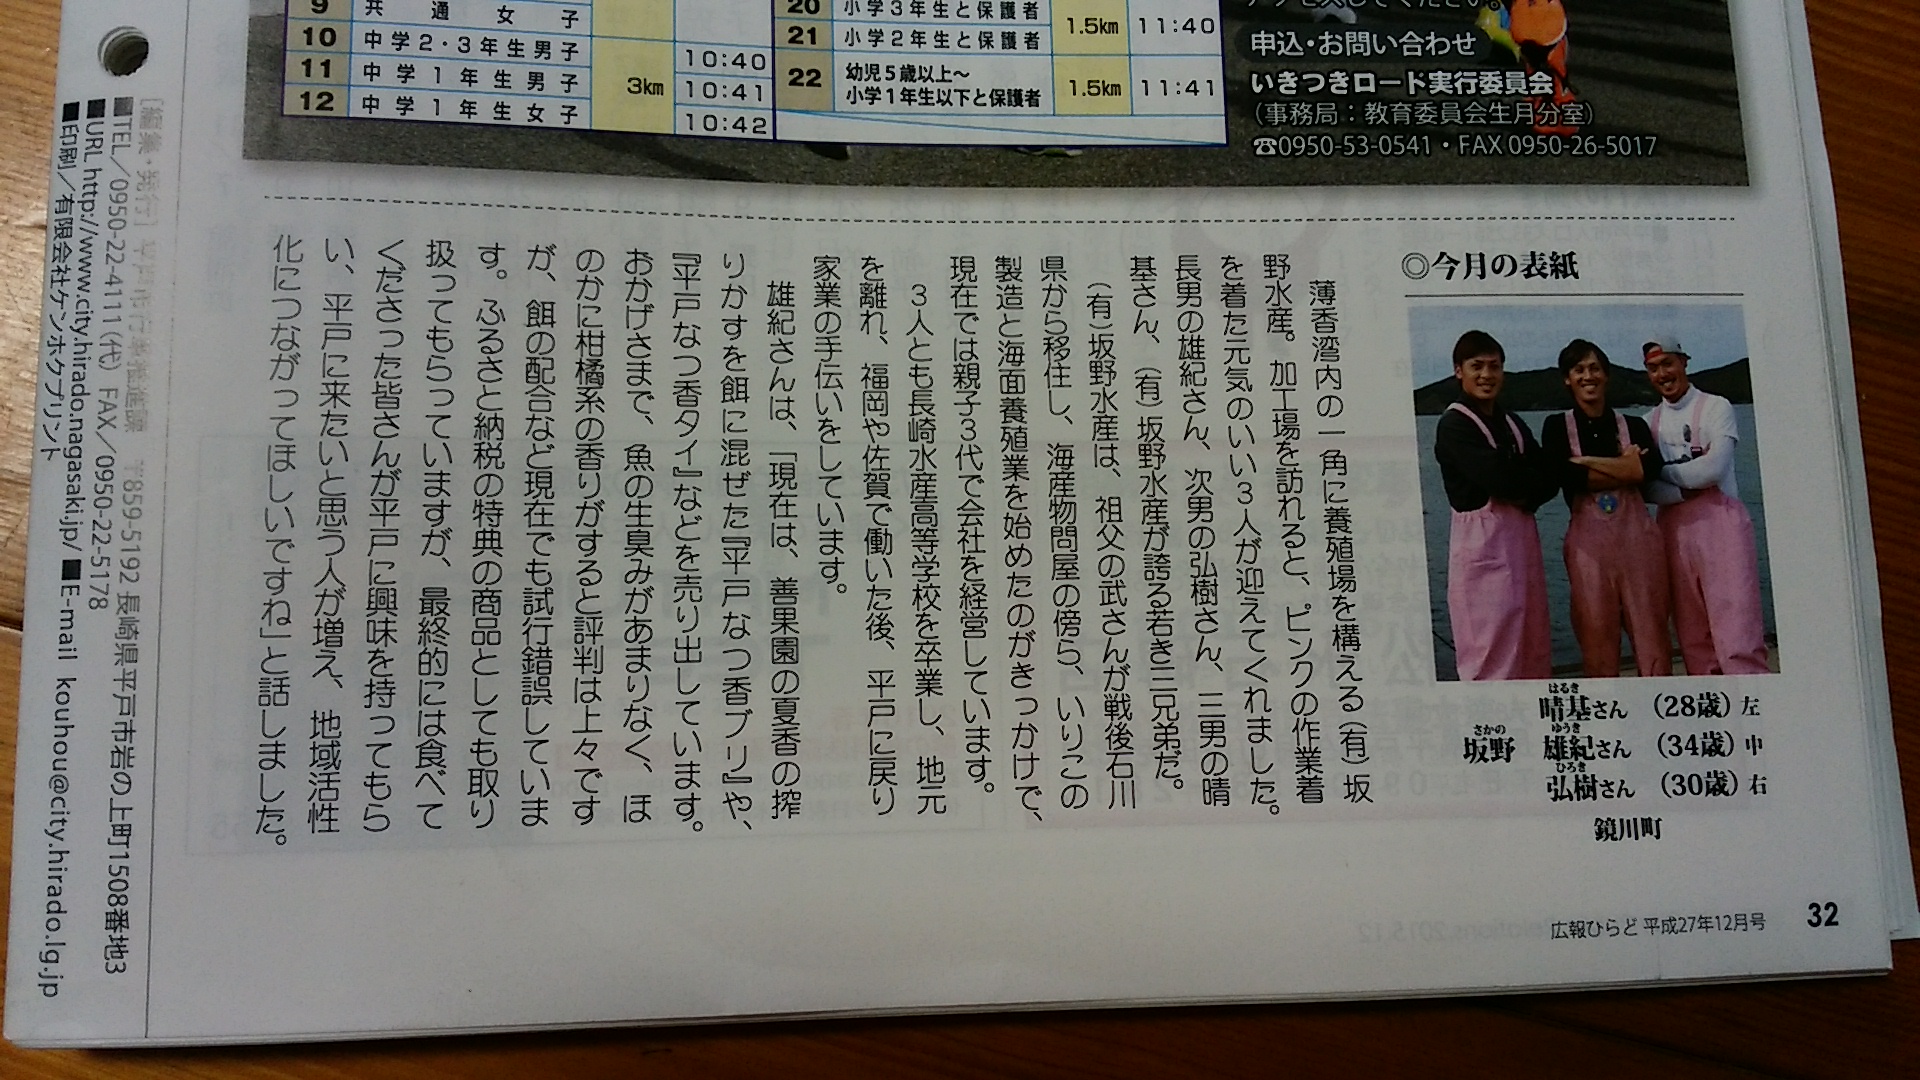 9 共通女子
10 中学2・3年生男子 10:40
11 中学1年生男子 3km 10:41
12 中学1年生女子 10:42
20 小学3年生と保護者
21 小学2年生と保護者 1.5km 11:40
22 幼児5歳以上～
小学1年生以下と保護者 1.5km 11:41
申込・お問い合わせ
いきつきロード実行委員会
（事務局：教育委員会生月分室）
☎0950-53-0541・FAX 0950-26-5017
◎今月の表紙
はるき
晴基さん （28歳）左
さかの ゆうき
坂野 雄紀さん （34歳）中
ひろき
弘樹さん （30歳）右
鏡川町
薄香湾内の一角に養殖場を構える（有）坂
野水産。加工場を訪れると、ピンクの作業着
を着た元気のいい3人が迎えてくれました。
長男の雄紀さん、次男の弘樹さん、三男の晴
基さん、（有）坂野水産が誇る若き三兄弟だ。
（有）坂野水産は、祖父の武さんが戦後石川
県から移住し、海産物問屋の傍ら、いりこの
製造と海面養殖業を始めたのがきっかけで、
現在では親子3代で会社を経営しています。
3人とも長崎水産高等学校を卒業し、地元
を離れ、福岡や佐賀で働いた後、平戸に戻り
家業の手伝いをしています。
雄紀さんは、「現在は、善果園の夏香の搾
りかすを餌に混ぜた『平戸なつ香ブリ』や、
『平戸なつ香タイ』などを売り出しています。
おかげさまで、魚の生臭みがあまりなく、ほ
のかに柑橘系の香りがすると評判は上々です
が、餌の配合など現在でも試行錯誤していま
す。ふるさと納税の特典の商品としても取り
扱ってもらっていますが、最終的には食べて
くださった皆さんが平戸に興味を持ってもら
い、平戸に来たいと思う人が増え、地域活性
化につながってほしいですね」と話しました。
広報ひらど 平成27年12月号 32
［編集・発行］平戸市 〒859-5192 長崎県平戸市岩の上町1508番地3
■TEL／0950-22-4111（代） FAX／0950-22-5178
■URL http://www.city.hirado.nagasaki.jp/ ■E-mail kouhou@city.hirado.lg.jp
■印刷／有限会社ケンホクプリント